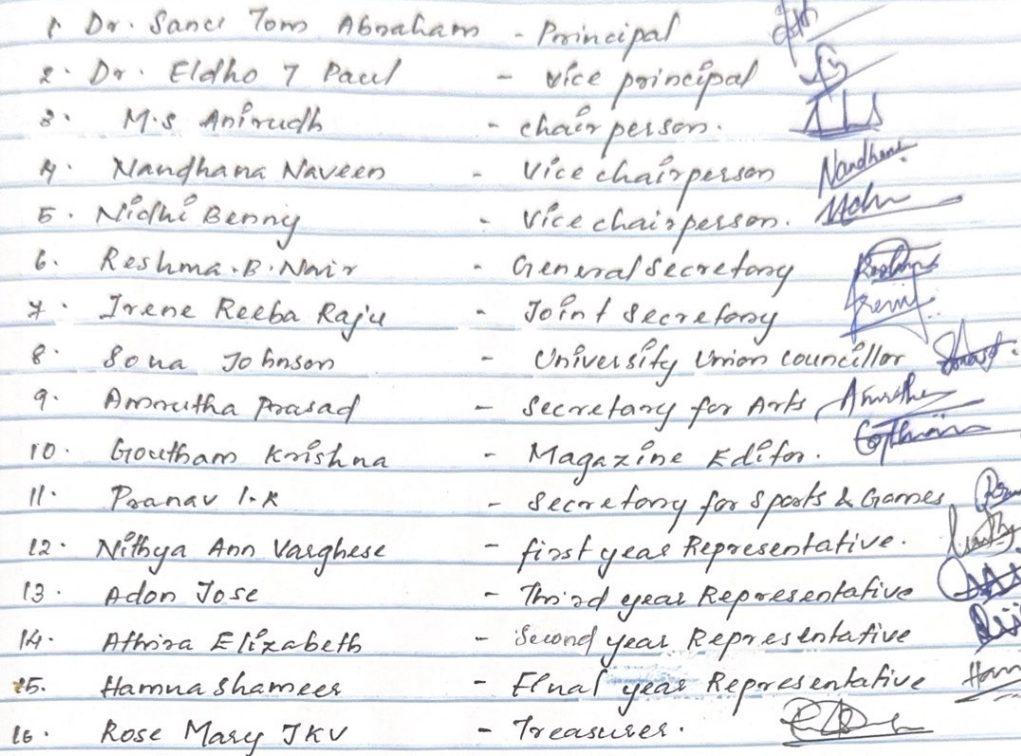 1. Dr. Sanci Tom Abraham - Principal
2. Dr. Eldho T Paul - vice principal
3. M.s Anirudh - chairperson.
4. Nandhana Naveen - Vice chairperson Nandhana
5. Nidhi Benny - Vice chairperson.
6. Reshma.B.Nair - General Secretary
7. Irene Reeba Raju - Joint Secretary
8. Sona Johnson - University Union councillor
9. Amrutha Prasad - Secretary for Arts
10. Goutham Krishna - Magazine Editor.
11. Pranav I.R - Secretary for Sports & Games
12. Nithya Ann Varghese - first year Representative.
13. Adon Jose - Third year Representative
14. Athira Elizabeth - Second year Representative
15. Hamna Shameer - Final year Representative
16. Rose Mary JKV - Treasurer.